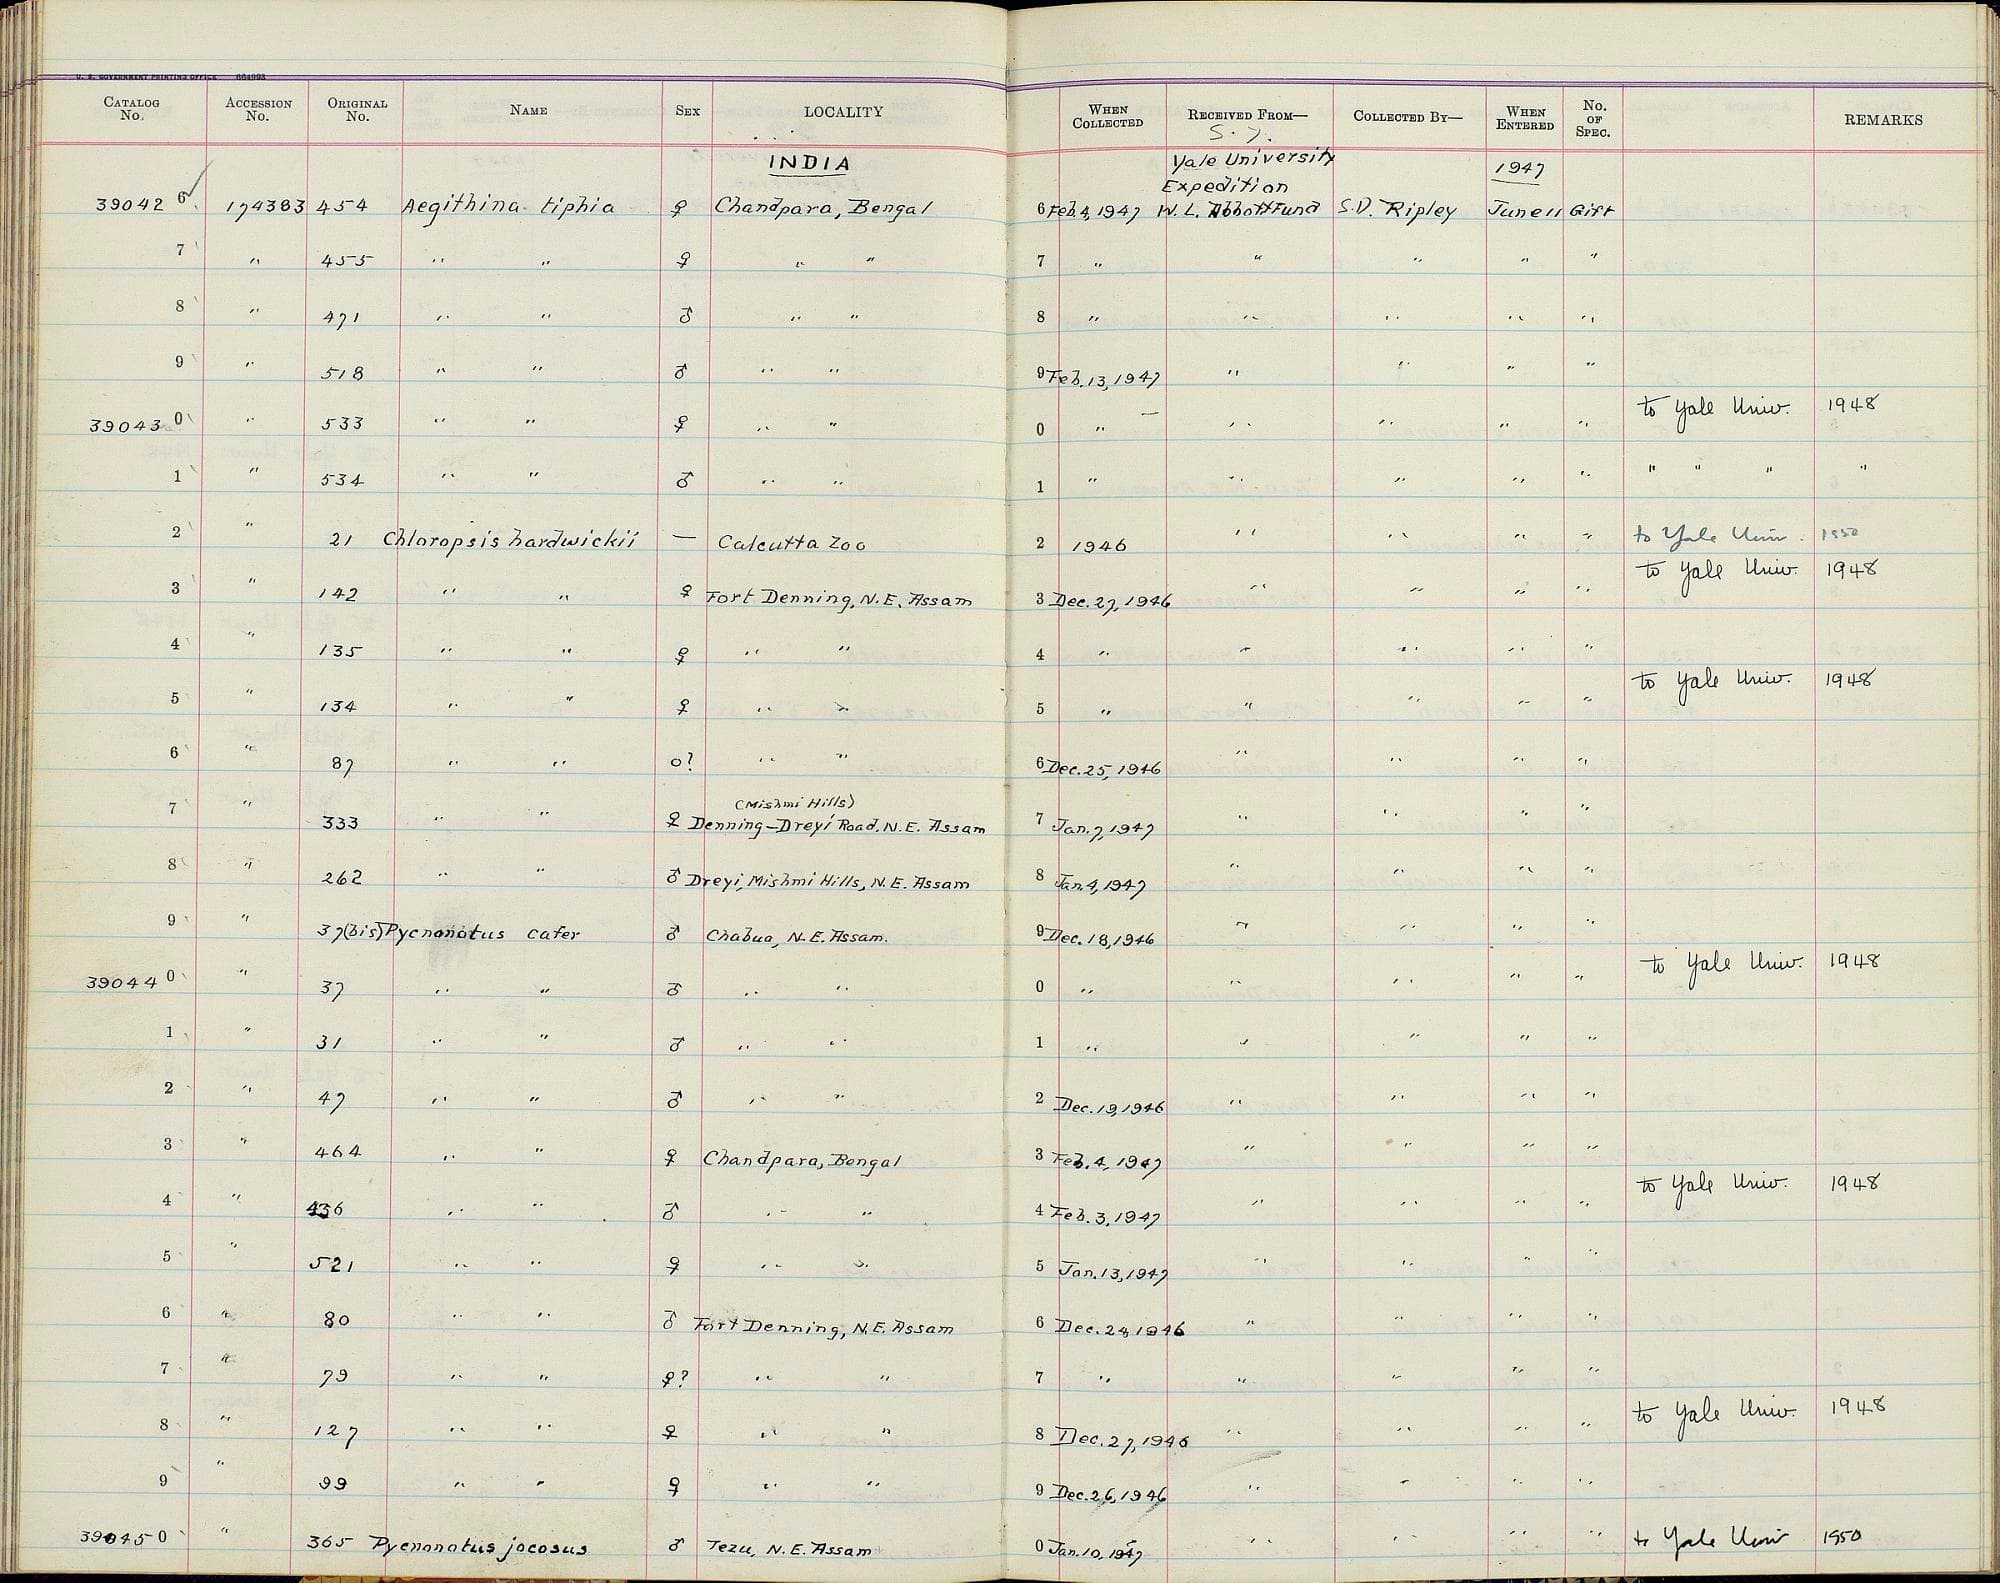 U. S. GOVERNMENT PRINTING OFFICE 664993
CATALOG No. ACCESSION No. ORIGINAL No. NAME SEX LOCALITY WHEN COLLECTED RECEIVED FROM— COLLECTED BY— WHEN ENTERED No. OF SPEC. REMARKS
INDIA Yale University 1947
Expedition
39042 6 174383 454 Aegithina tiphia ♀ Chandpara, Bengal 6 Feb. 4, 1947 W. L. Abbott Fund S.D. Ripley June 11 Gift
7 " 455 " " ♀ " " 7 " " " " "
8 " 471 " " ♂ " " 8 " " " " "
9 " 518 " " ♂ " " 9 Feb. 13, 1947 " " " "
39043 0 " 533 " " ♀ " " 0 " " " " " to Yale Univ. 1948
1 " 534 " " ♂ " " 1 " " " " " " " " "
2 " 21 Chloropsis hardwickii — Calcutta Zoo 2 1946 " " " " to Yale Univ. 1950
3 " 142 " " ♀ Fort Denning, N.E. Assam 3 Dec. 27, 1946 " " " " to Yale Univ. 1948
4 " 135 " " ♀ " " 4 " " " " "
5 " 134 " " ♀ " " 5 " " " " " to Yale Univ. 1948
6 " 87 " " o? " " 6 Dec. 25, 1946 " " " "
(Mishmi Hills)
7 " 333 " " ♀ Denning-Dreyi Road, N.E. Assam 7 Jan. 7, 1947 " " " "
8 " 262 " " ♂ Dreyi, Mishmi Hills, N.E. Assam 8 Jan. 4, 1947 " " " "
9 " 37(bis) Pycnonotus cafer ♂ Chabua, N.E. Assam. 9 Dec. 18, 1946 " " " "
39044 0 " 37 " " ♂ " " 0 " " " " " to Yale Univ. 1948
1 " 31 " " ♂ " " 1 " " " " "
2 " 47 " " ♂ " " 2 Dec. 19, 1946 " " " "
3 " 464 " " ♀ Chandpara, Bengal 3 Feb. 4, 1947 " " " "
4 " 436 " " ♂ " " 4 Feb. 3, 1947 " " " " to Yale Univ. 1948
5 " 521 " " ♀ " " 5 Jan. 13, 1947 " " " "
6 " 80 " " ♂ Fort Denning, N.E. Assam 6 Dec. 24, 1946 " " " "
7 " 79 " " ♀? " " 7 " " " " "
8 " 127 " " ♀ " " 8 Dec. 27, 1946 " " " " to Yale Univ. 1948
9 " 99 " " ♀ " " 9 Dec. 26, 1946 " " " "
39045 0 " 365 Pycnonotus jocosus ♂ Tezu, N.E. Assam 0 Jan. 10, 1947 " " " " to Yale Univ 1950